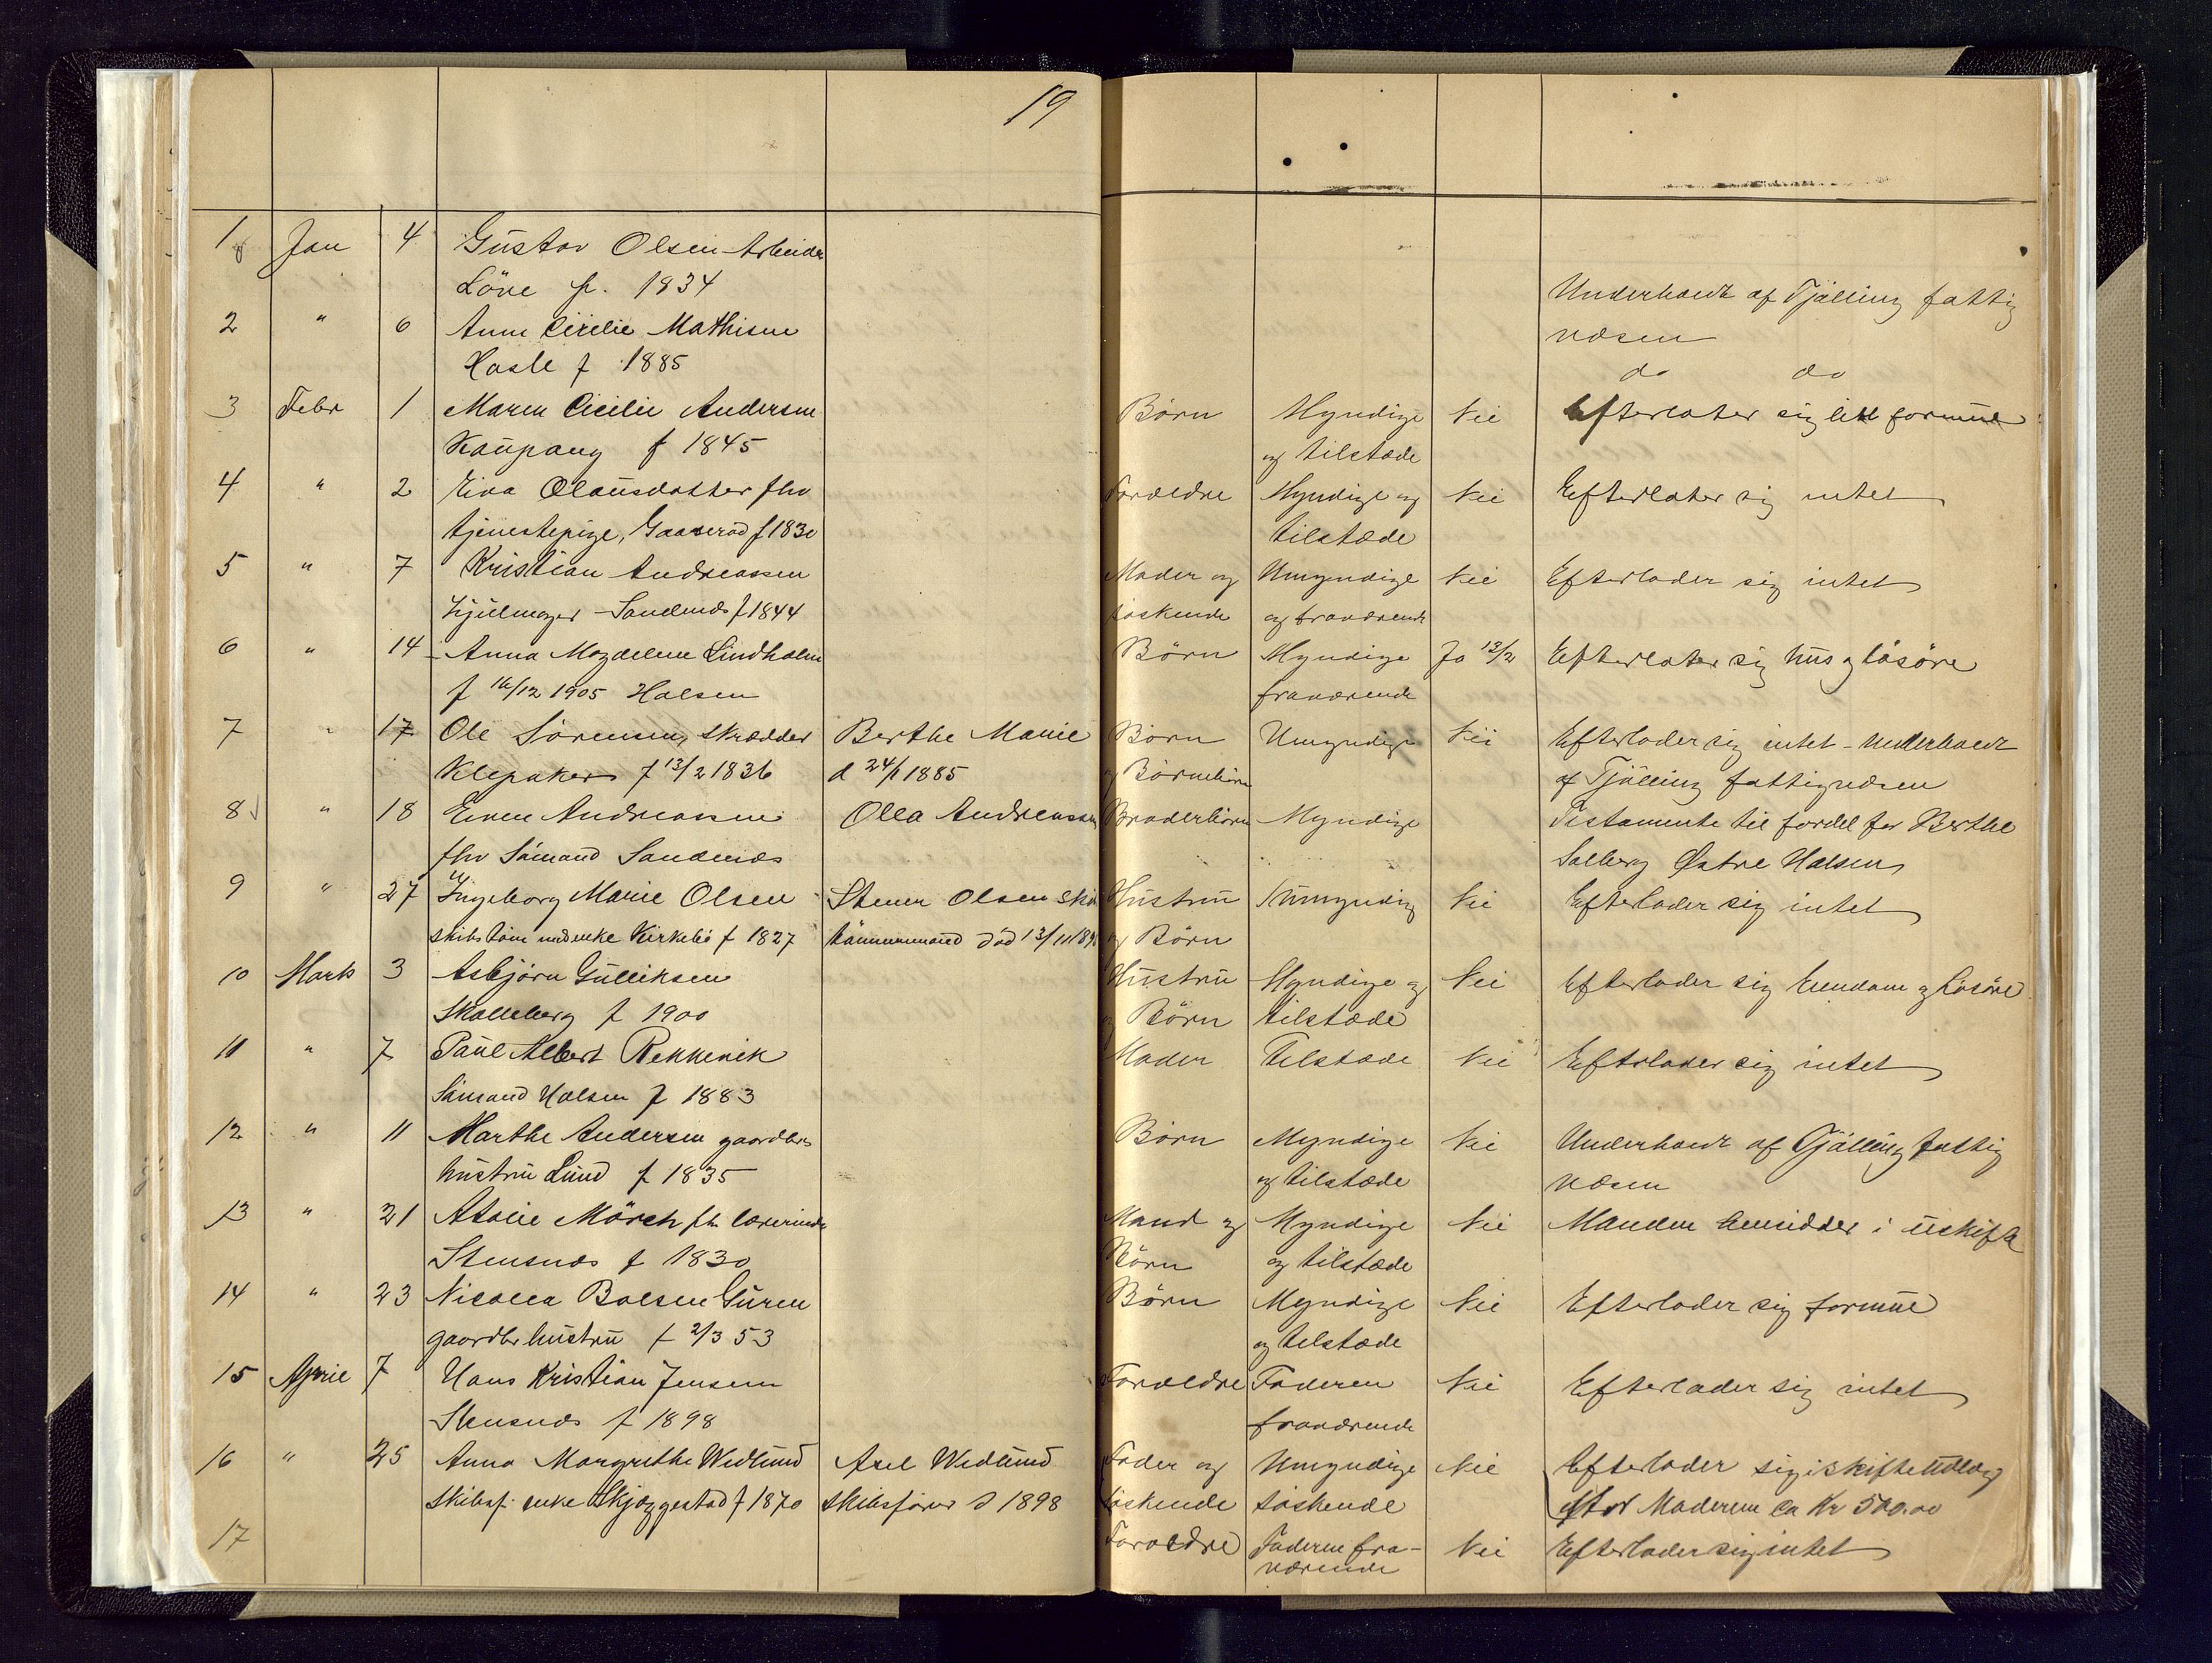 19
1 Jan 4 Gustav Olsen Arbeider
Löve f. 1834
Underhavdt af Tjölling fattig
2 " 6 Anne Cicilie Mathisen
væsen
Hasle f 1885
do do
3 Febr 1 Maren Cicilie Andersen Börn Myndige Nei Efterlater sig litt formue
Kaupang f 1845 og tilstæde
4 " 2 Eiva Olausdatter fhv Foreldre Myndige og Nei Efterlater sig intet
tjenestepige, Gaaserød f 1830 tilstæde
5 " 7 Kristian Andreassen Moder og Umyndige Nei Efterlader sig intet
Hjulmager Sandnæs f 1844 söskende og fraværende
6 " 14 Anna Magdelene Lindholm Börn Myndige Ja 12/2 Efterlater sig hus og lösöre
f 16/12 1905 Halsen fraværende
7 " 17 Ole Sörensen, skrædder Berthe Marie Börn Umyndige Nei Efterlader sig intet - underhavdt
Klepaker f 13/2 1836 d 24/1 1885 og Börnebörn af Tjölling fattigvæsen
8 " 18 Even Andreassen Olea Andreassen Broderbörn Myndige Testamente til fordel for Berthe
fhv Sömand Sandnæs Solberg Østre Halsen
9 " 27 Ingeborg Marie Olsen Stener Olsen Hustru Umyndig Nei Efterlader sig intet
skibstömmedenke Kirkebö f 1827 tömmermand död 13/11 og Börn
10 Marts 3 Asbjörn Gulliksen Hustru Myndige og Nei Efterlader sig Eiendom og Lösöre
Skalleberg f 1900 og Börn tilstæde
11 " 7 Paul Albert Rekkevik Moder Tilstæde Nei Efterlader sig intet
Sömand Halsen f 1883
12 " 11 Marthe Andersen gaardbrs Börn Myndige Nei Underhavdt af Tjölling fattig
hustru Lund f 1835 og tilstæde væsen
13 " 21 Atalie Mörch fh lærerinde Mand og Myndige Nei Manden hensidder i uskifte
Stensnæs f 1830 Börn og tilstæde
14 " 23 Nicolea Bolsen Guren Börn Myndige Nei Efterlader sig formue
gaardbr hustru f 2/3 53 og tilstæde
15 April 7 Hans Kristian Jensen Foreldre Faderen Nei Efterlader sig intet
Stensnæs f 1898 fraværende
16 " 25 Anna Margrethe Wedlund Axel Wedlund Fader og Umyndige Nei Efterlader sig i skifteudlæg
skibsf. enke Skjæggestad f 1870 skibsförer d 1898 söskende söskende efter Moderen ca Kr 500.00
17 Foreldre Faderen fra- Nei Efterlader sig intet
værende